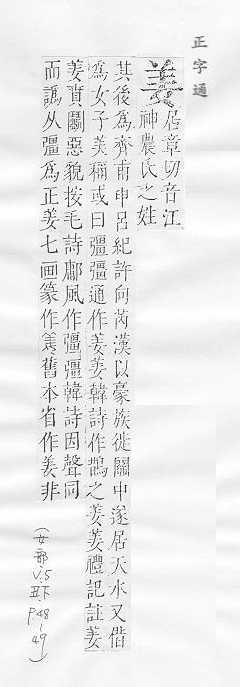 正字通
姜
居章切音江
神農氏之姓
其後為齊甫申呂紀許向芮漢以豪族徙關中遂居天水又借
為女子美稱或曰彊彊通作姜姜韓詩作鵲之姜姜禮記註姜
姜貭鬬惡貌按毛詩鄘風作彊彊韓詩因聲同
而譌从彊為正姜七画篆作舊本省作非
(女部 V.5 丑下 P.48-49)